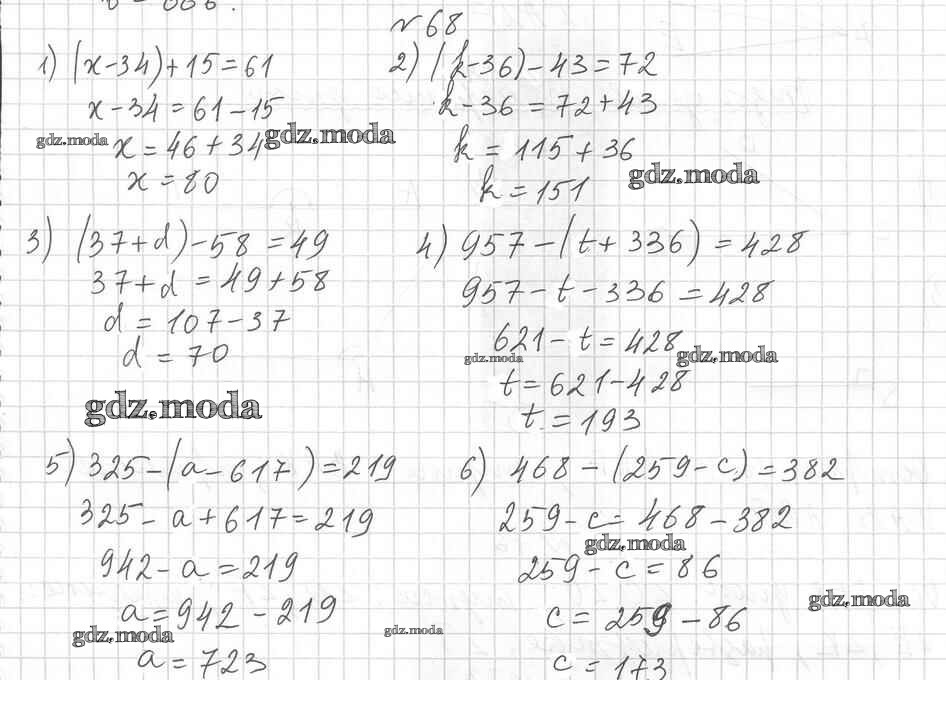 № 68
1) (x-34)+15=61
x-34=61-15
x=46+34
x=80
2) (k-36)-43=72
k-36=72+43
k=115+36
k=151
gdz.moda
gdz.moda
gdz.moda
3) (37+d)-58=49
37+d=49+58
d=107-37
d=70
4) 957-(t+336)=428
957-t-336=428
621-t=428
t=621-428
t=193
gdz.moda
gdz.moda
gdz.moda
5) 325-(a-617)=219
325-a+617=219
942-a=219
a=942-219
a=723
6) 468-(259-c)=382
259-c=468-382
259-c=86
c=259-86
c=173
gdz.moda
gdz.moda
gdz.moda
gdz.moda